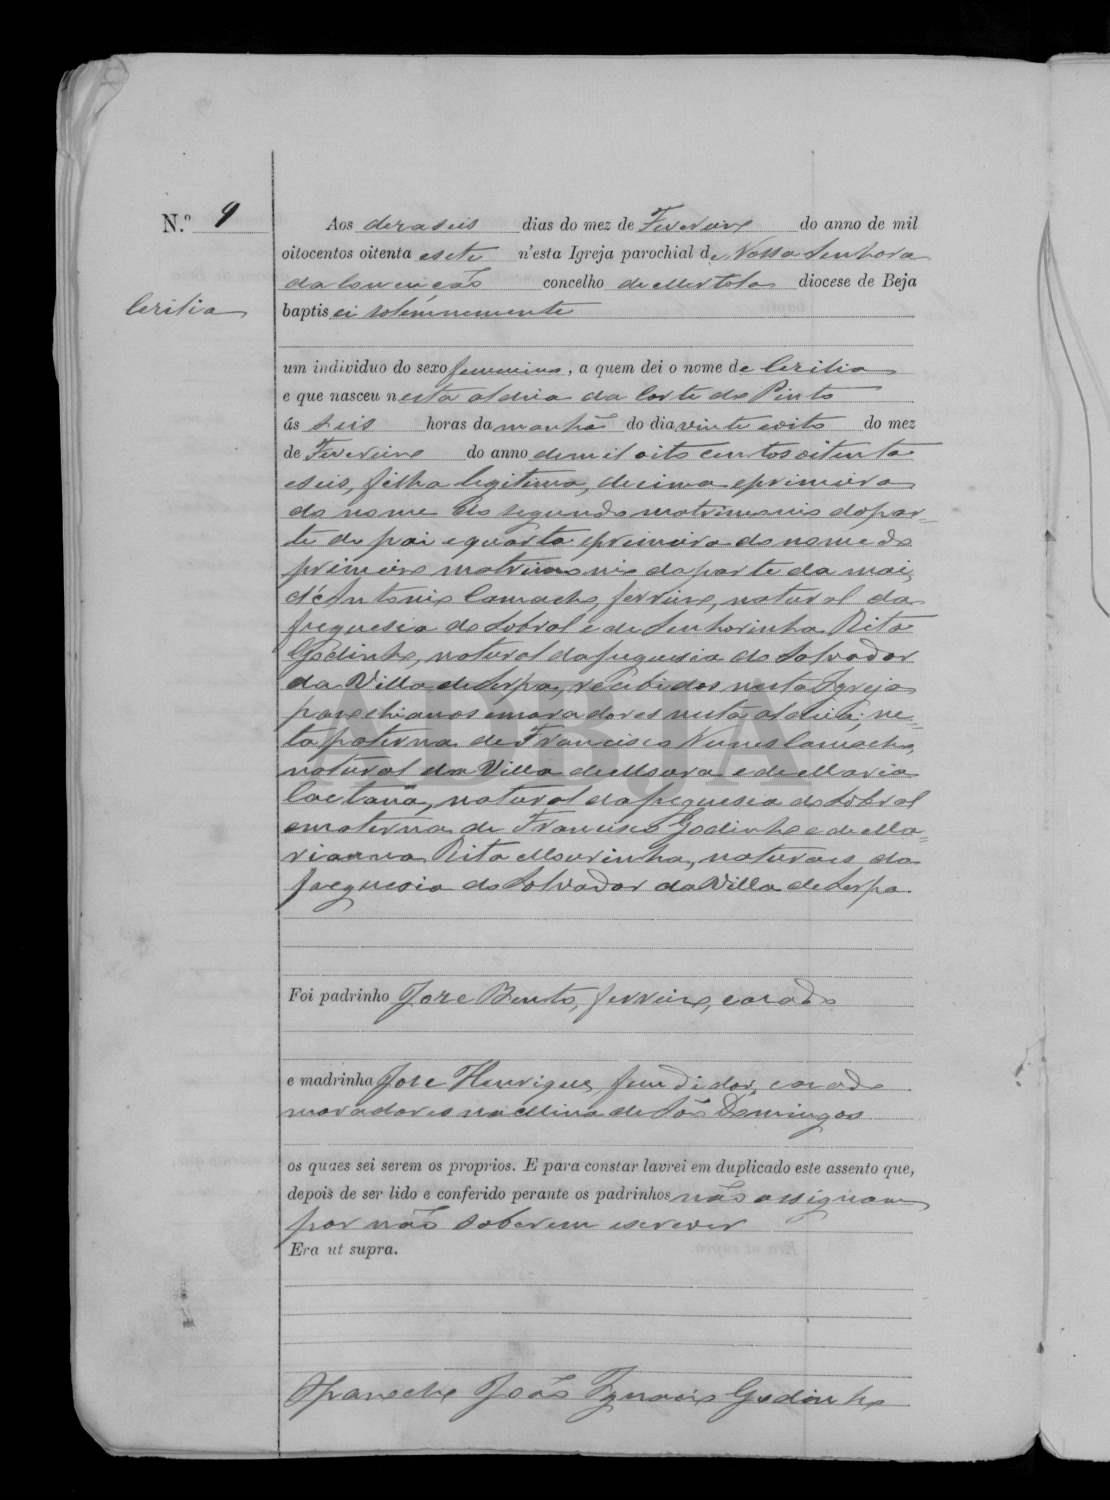 N.º 9
Aos dezaseis dias do mez de Fevereiro do anno de mil
oitocentos oitenta e sete n'esta Igreja parochial de Nossa Senhora
da Conceição concelho de Mertola diocese de Beja
Cezilia
baptisei solémnemente
um individuo do sexo femenino, a quem dei o nome de Cezilia
e que nasceu nesta aldeia da Corte do Pinto
ás seis horas da manhã do dia vinte e oito do mez
de Fevereiro do anno de mil oito centos oitenta
e seis, filha legitima, decima e primeira
do nome do segundo matrimonio da par=
te do pai e quarta e premeira do nome do
primeiro matrimonio da parte da mai,
d'Antonio Camacho, ferreiro, natural da
freguesia do Sobral e de Senhorinha Rita
Godinho, natural da freguesia do Salvador
da Villa de Serpa, recebidos nesta Igreja
parochianos e moradores nesta aldeia; ne=
ta paterna de Francisco Nunes Camacho,
natural da Villa de Moura e de Maria
Caetana, natural da freguesia do Sobral
e materna de Francisco Godinho e de Ma=
rianna Rita Mourinha, naturaes da
freguesia do Salvador da Villa de Serpa.
Foi padrinho Joze Bento, ferreiro, casado
e madrinha Joze Henriques fundidor, casado
moradores na Mina de São Domingos
os quaes sei serem os proprios. E para constar lavrei em duplicado este assento que,
depois de ser lido e conferido perante os padrinhos não assignam
por não saberem escrever
Era ut supra.
O paroche João Ignacio Godinho
ADBJA